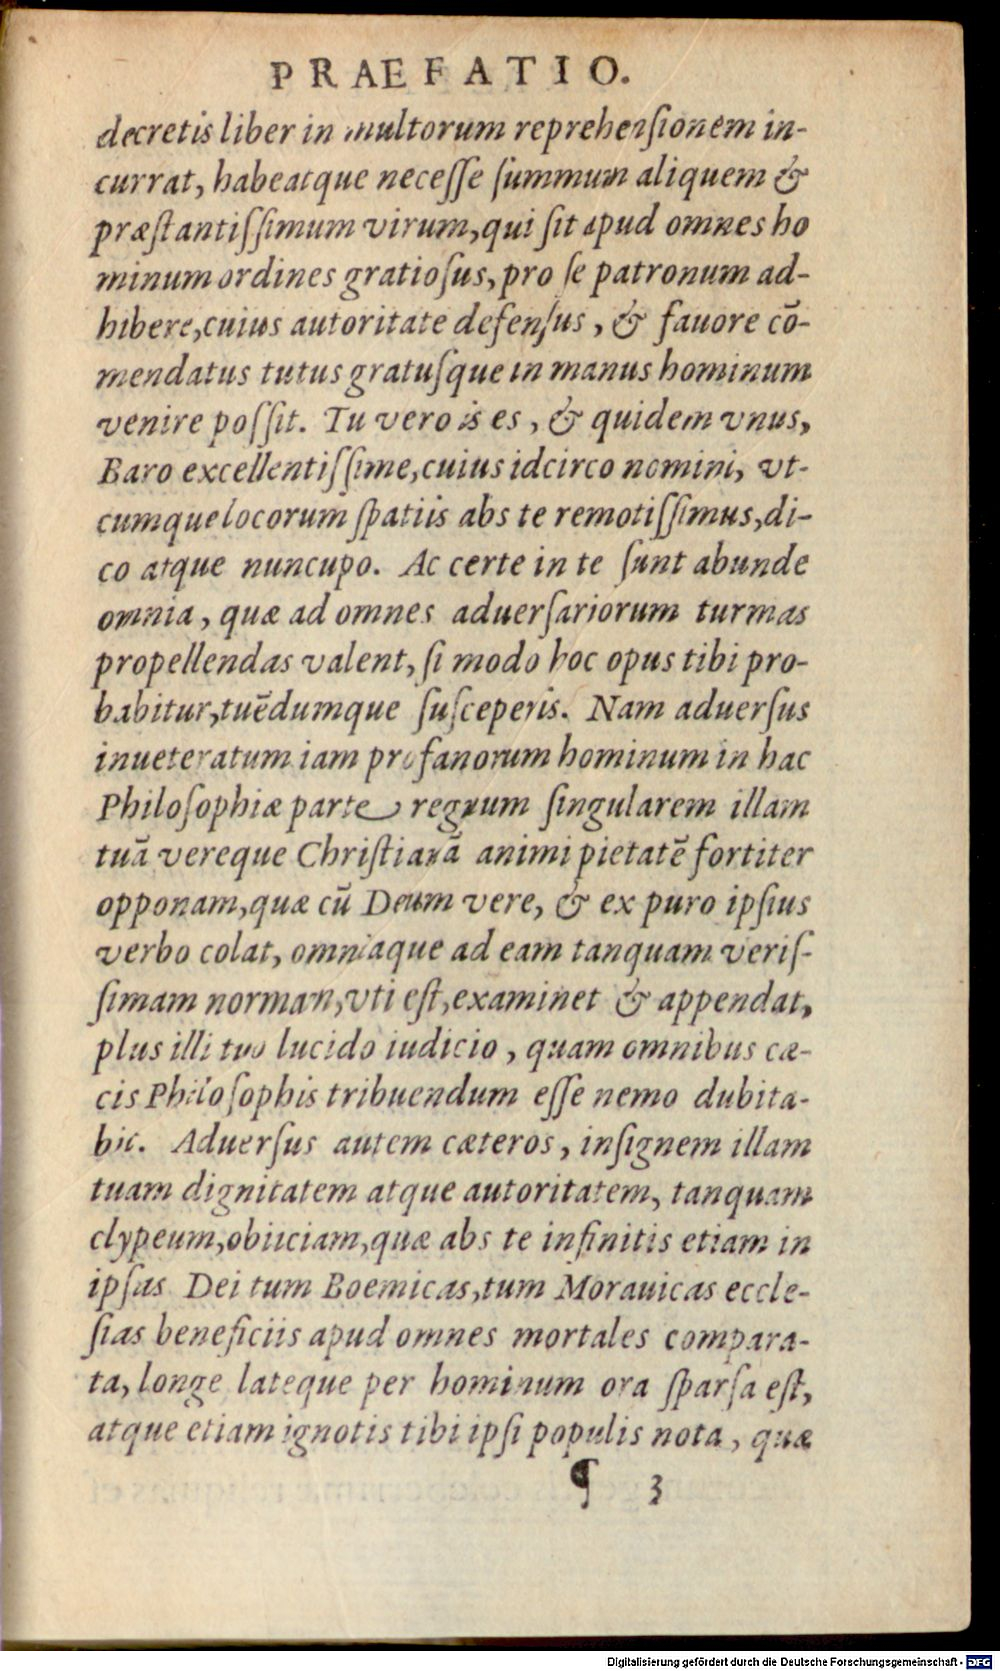 PRAEFATIO.
decretis liber in multorum reprehensionem in-
currat, habeatque necesse summum aliquem &
præstantissimum virum, qui sit apud omnes ho
minum ordines gratiosus, pro se patronum ad-
hibere, cuius autoritate defensus, & fauore cō-
mendatus tutus gratusque in manus hominum
venire possit. Tu vero is es, & quidem vnus,
Baro excellentissime, cuius idcirco nomini, vt-
cumque locorum spatiis abs te remotissimus, di-
co atque nuncupo. Ac certe in te sunt abunde
omnia, quæ ad omnes aduersariorum turmas
propellendas valent, si modo hoc opus tibi pro-
babitur, tuēdumque susceperis. Nam aduersus
inueteratum iam profanorum hominum in hac
Philosophiæ parte regnum singularem illam
tuā vereque Christianā animi pietatē fortiter
opponam, quæ cū Deum vere, & ex puro ipsius
verbo colat, omniaque ad eam tanquam veris-
simam normam, vti est, examinet & appendat,
plus illi tuo lucido iudicio, quam omnibus cæ-
cis Philosophis tribuendum esse nemo dubita-
bit. Aduersus autem cæteros, insignem illam
tuam dignitatem atque autoritatem, tanquam
clypeum, obiiciam, quæ abs te infinitis etiam in
ipsas Dei tum Boemicas, tum Morauicas eccle-
sias beneficiis apud omnes mortales compara-
ta, longe lateque per hominum ora sparsa est,
atque etiam ignotis tibi ipsi populis nota, quæ
¶ 3
Digitalisierung gefördert durch die Deutsche Forschungsgemeinschaft - DFG